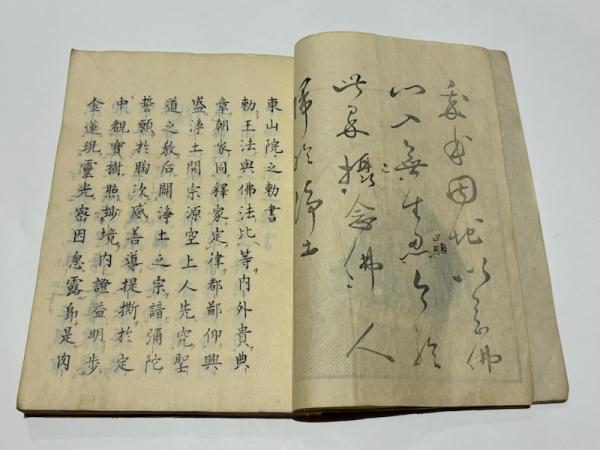 我本因地以念佛
心入無生忍今於
此界攝念佛人
歸於淨土
東山院之勅書
勅王法與佛法比等內外貴典
章朝家同釋家定律都鄙仰興
盛淨土開宗源空上人先究聖
道之教后闢淨土之宗諳彌陀
誓願於胸次感善導提撕於定
中觀寶樹照玅境內證益明步
金蓮現靈光密因忽露身是肉